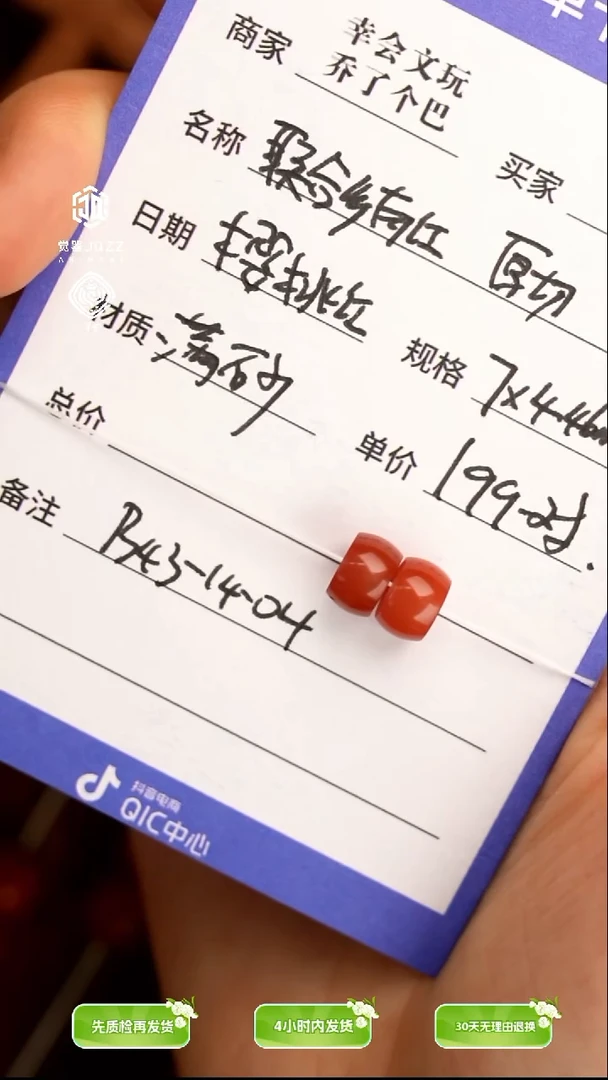 商家 幸会文玩
乔了个巴
买家
名称 联合乡南红 原切
日期 樱桃红
材质 满肉 规格 7x4.4
总价 单价 199-对.
备注 B43-14-04
觉器 JUZZ
抖音电商
QIC中心
先质检再发货 4小时内发货 30天无理由退换